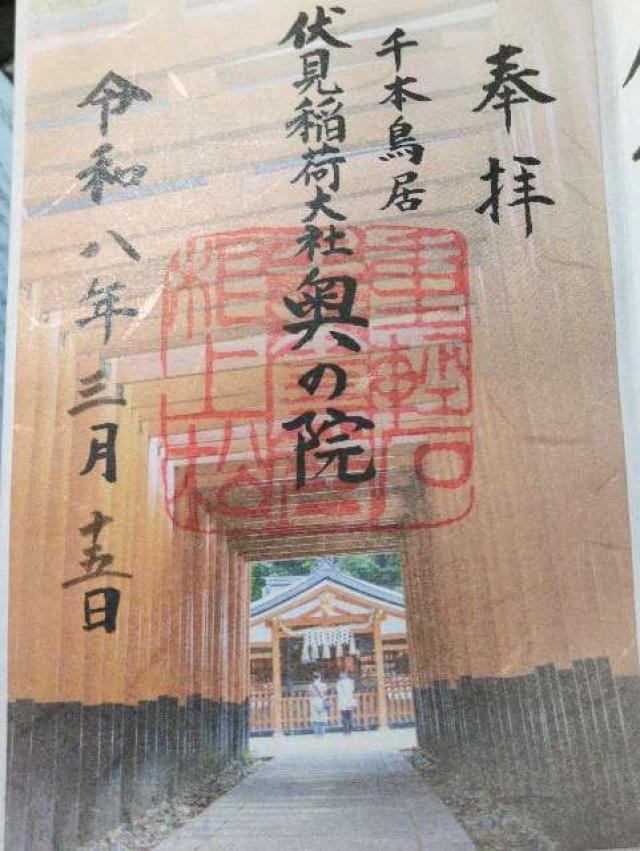 奉拝
千本鳥居
伏見稲荷大社奥の院
令和八年三月十五日
重軽石
根上松